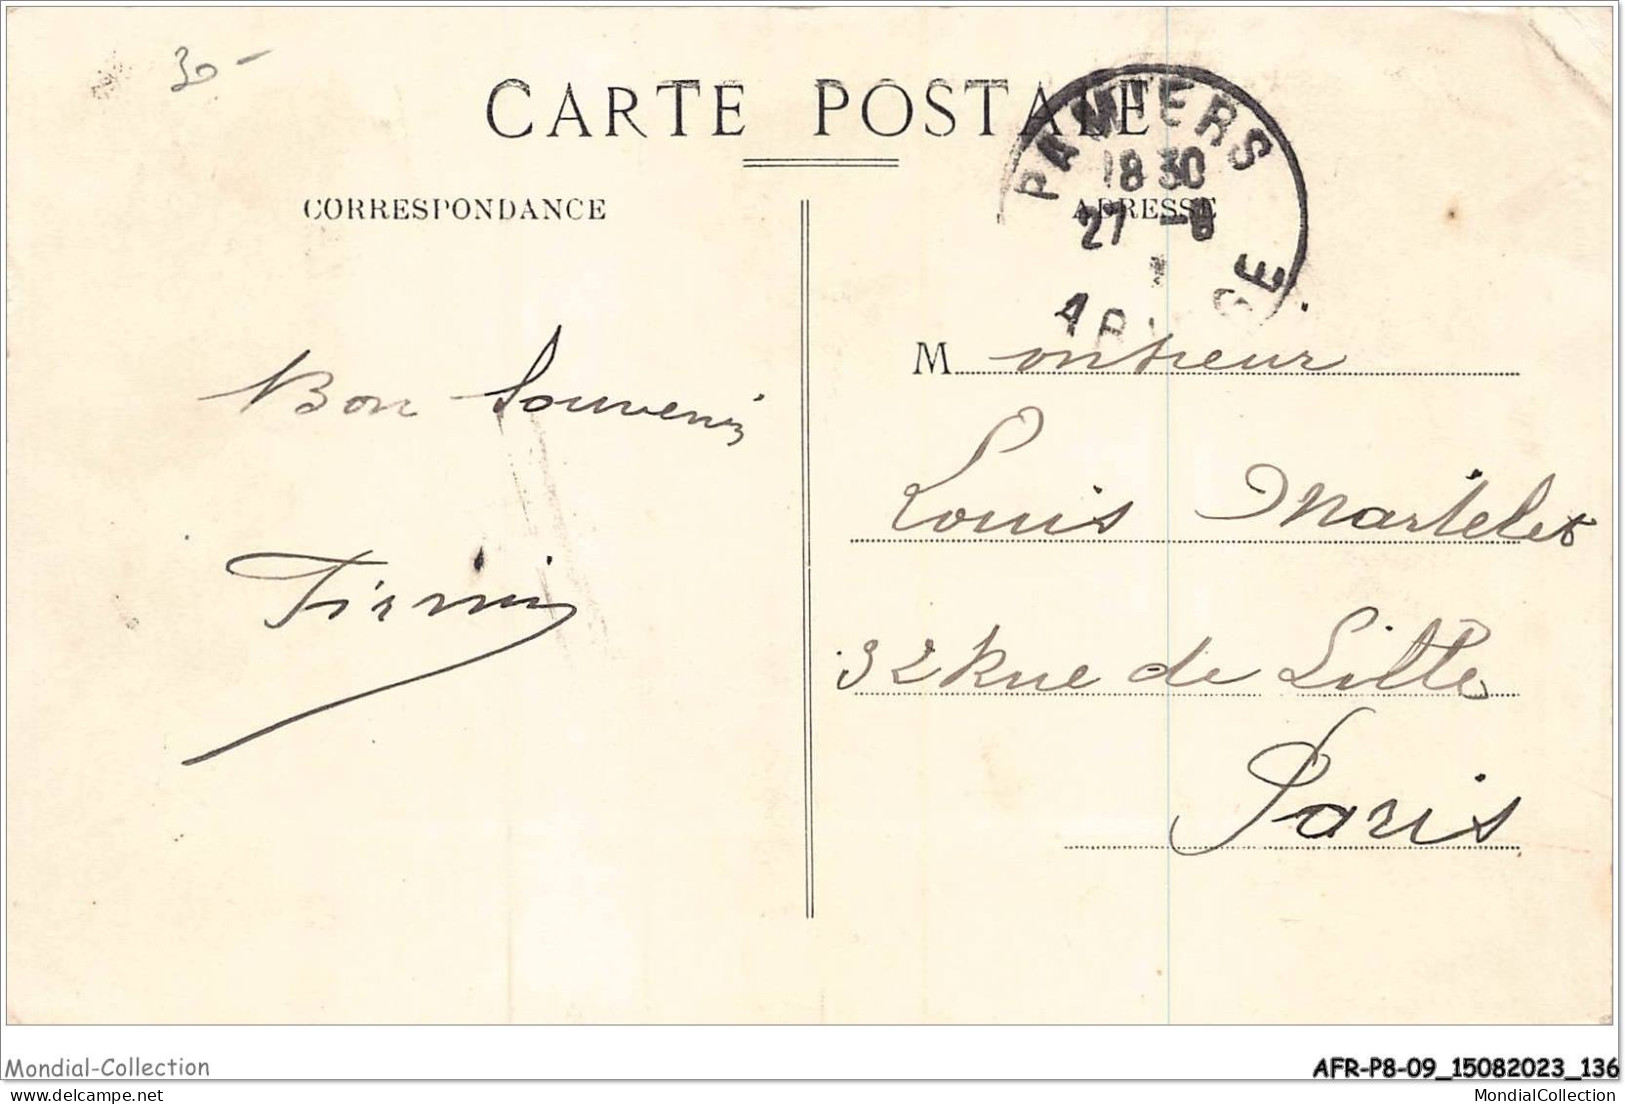 30-
CARTE POSTALE
PAMIERS
18 30
27 -8
ARIEGE
CORRESPONDANCE
ADRESSE
Monsieur
Bon Souvenir
Louis Martelet
Firmin
32 Rue de Lille
Paris
Mondial-Collection
AFR-P8-09_15082023_136
MondialCollection